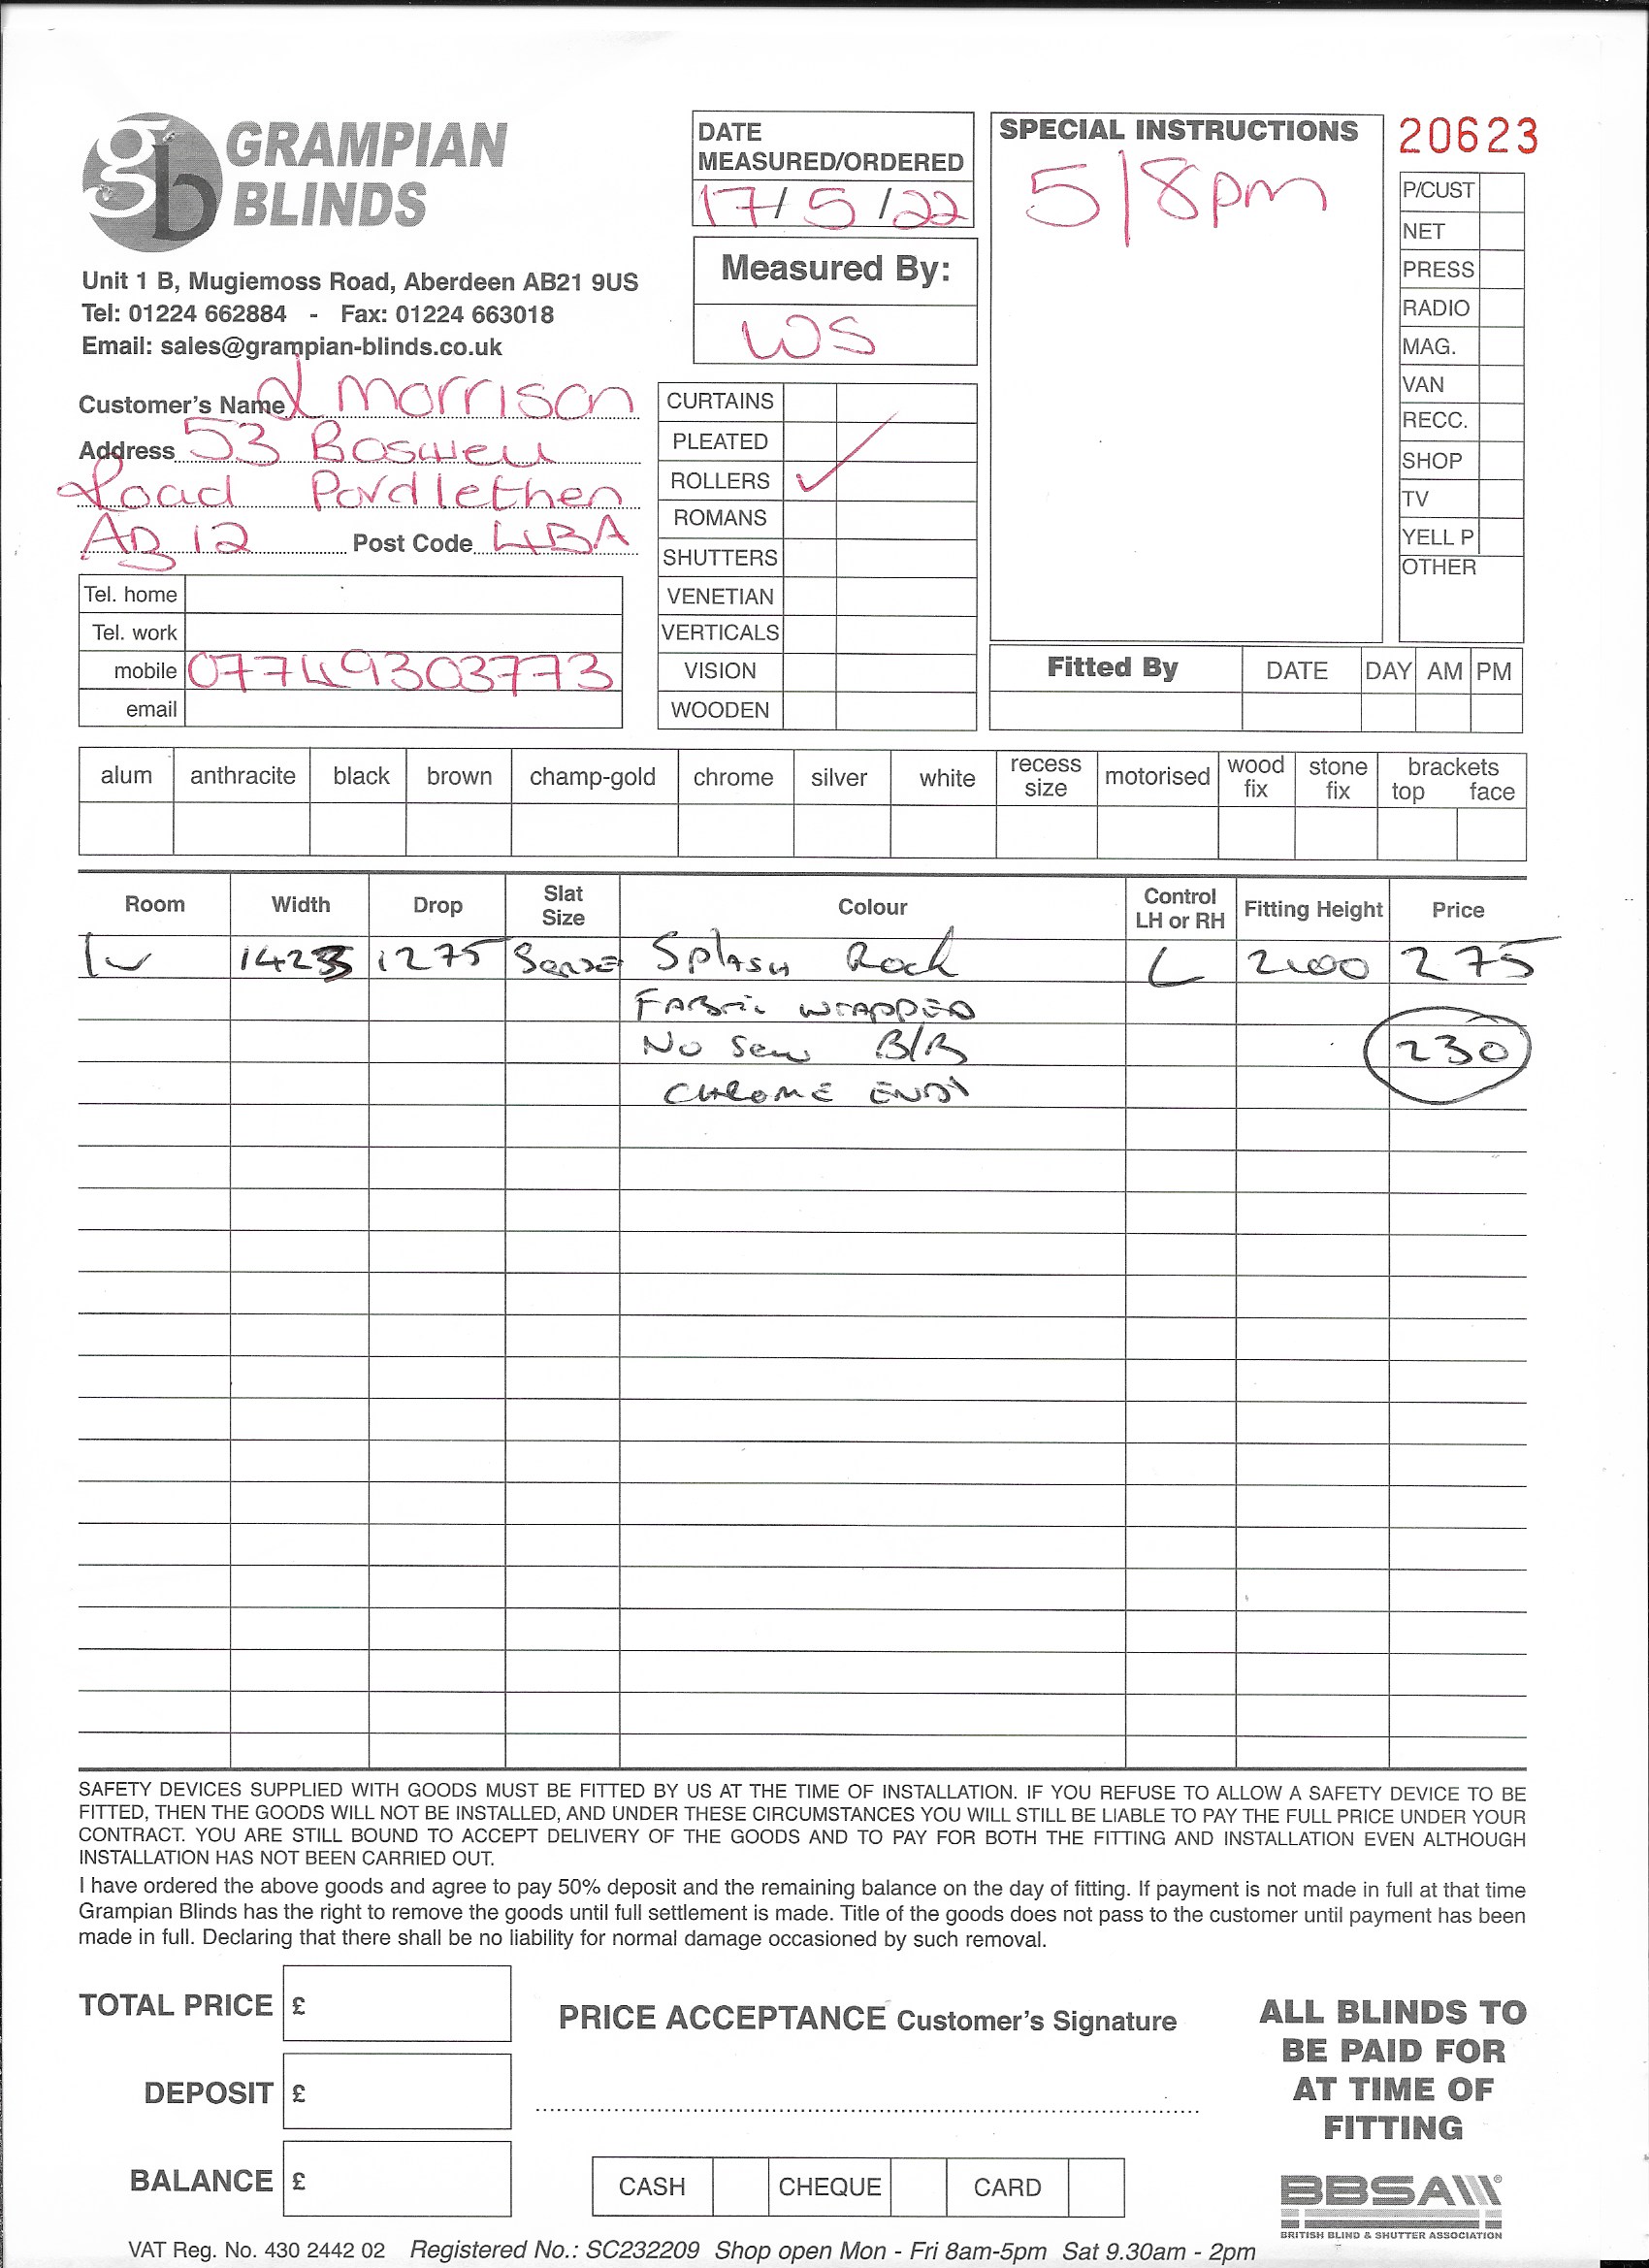 gb GRAMPIAN BLINDS
Unit 1 B, Mugiemoss Road, Aberdeen AB21 9US
Tel: 01224 662884 - Fax: 01224 663018
Email: sales@grampian-blinds.co.uk
Customer's Name L Morrison
Address 53 Boswell
Road Pordlethen
AB 12 Post Code 4BA
Tel. home
Tel. work
mobile 07749303773
email
DATE
MEASURED/ORDERED
17/5/22
Measured By:
WS
CURTAINS
PLEATED
ROLLERS ✓
ROMANS
SHUTTERS
VENETIAN
VERTICALS
VISION
WOODEN
SPECIAL INSTRUCTIONS
5/8pm
20623
P/CUST
NET
PRESS
RADIO
MAG.
VAN
RECC.
SHOP
TV
YELL P
OTHER
Fitted By DATE DAY AM PM
alum anthracite black brown champ-gold chrome silver white recess size motorised wood fix stone fix brackets top face
Room Width Drop Slat Size Colour Control LH or RH Fitting Height Price
1275 Splash Rock L 275
FABRIC WRAPPED
No Sew B/B 230
CHROME ENDS
SAFETY DEVICES SUPPLIED WITH GOODS MUST BE FITTED BY US AT THE TIME OF INSTALLATION. IF YOU REFUSE TO ALLOW A SAFETY DEVICE TO BE
FITTED, THEN THE GOODS WILL NOT BE INSTALLED, AND UNDER THESE CIRCUMSTANCES YOU WILL STILL BE LIABLE TO PAY THE FULL PRICE UNDER YOUR
CONTRACT. YOU ARE STILL BOUND TO ACCEPT DELIVERY OF THE GOODS AND TO PAY FOR BOTH THE FITTING AND INSTALLATION EVEN ALTHOUGH
INSTALLATION HAS NOT BEEN CARRIED OUT.
I have ordered the above goods and agree to pay 50% deposit and the remaining balance on the day of fitting. If payment is not made in full at that time
Grampian Blinds has the right to remove the goods until full settlement is made. Title of the goods does not pass to the customer until payment has been
made in full. Declaring that there shall be no liability for normal damage occasioned by such removal.
TOTAL PRICE £
DEPOSIT £
BALANCE £
PRICE ACCEPTANCE Customer's Signature
CASH CHEQUE CARD
ALL BLINDS TO
BE PAID FOR
AT TIME OF
FITTING
BBSA
BRITISH BLIND & SHUTTER ASSOCIATION
VAT Reg. No. 430 2442 02 Registered No.: SC232209 Shop open Mon - Fri 8am-5pm Sat 9.30am - 2pm